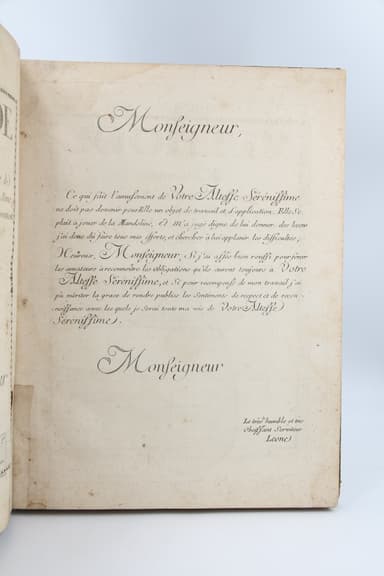 Monseigneur,
Ce qui fait l'amusement de Votre Altesse Sérénissime
ne doit pas devenir pour Elle un objet de travail et d'application. Elle Se
plait à jouer de la Mandoline, et m'a jugé digne de lui donner des leçons
j'ai donc dû faire tous mes efforts, et chercher à lui applanir les difficultés;
Heureux, Monseigneur, Si j'ai assés bien réussi pour forcer
les amateurs à reconnoître les Obligations qu'ils auront toujours à Votre
Altesse Sérénissime, et Si pour recompense de mon travail j'ai
pu mériter la grace de rendre publics les Sentiments de respect et de recon-
noissance avec lesquels je Serai toute ma vie de Votre Altesse
Sérénissime.
Monseigneur
Le très humble et très
Obéissant Serviteur
Leone